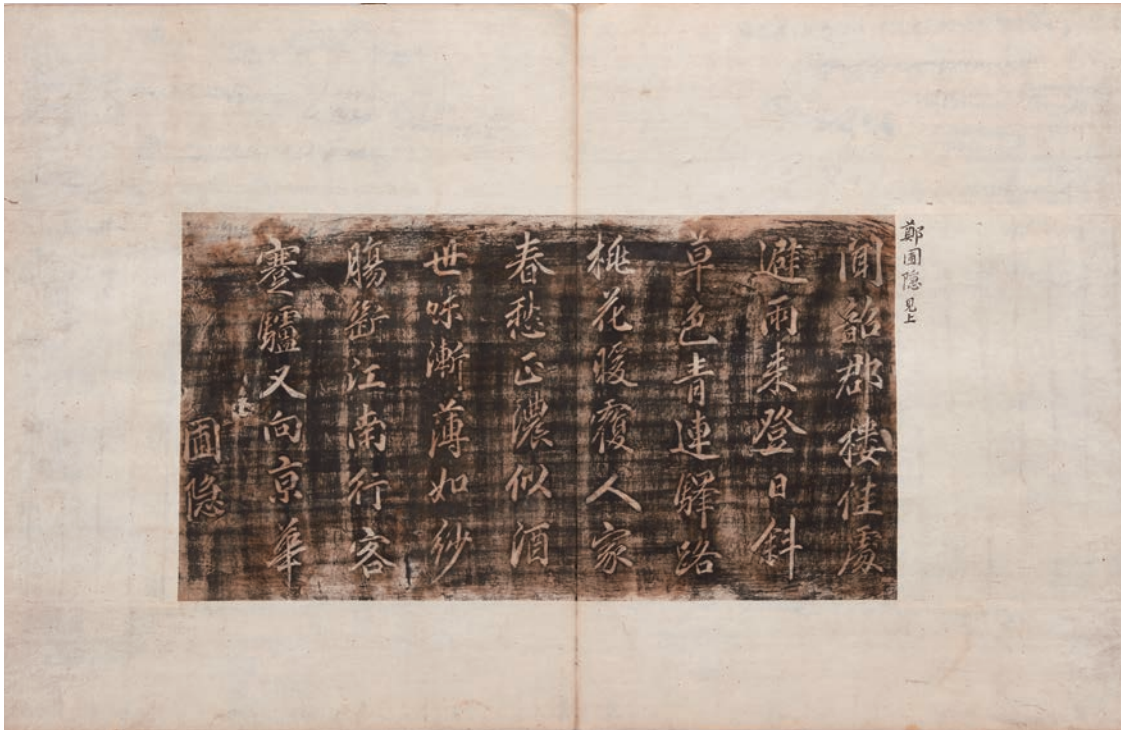 鄭圃隐 見上
聞韶郡樓佳處
避雨来登日斜
草色青連驛路
桃花暖覆人家
春愁正濃似酒
世味漸薄如紗
膓斷江南行客
蹇驢又向京華
圃隐